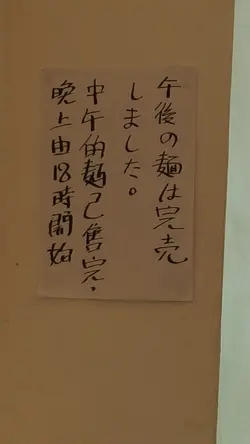 午後の麺は完売
しました。
中午的麵已售完.
晚上由18時開始